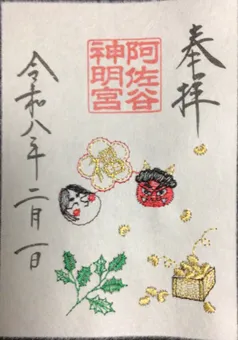 奉拝
阿佐谷
神明宮
令和八年二月一日